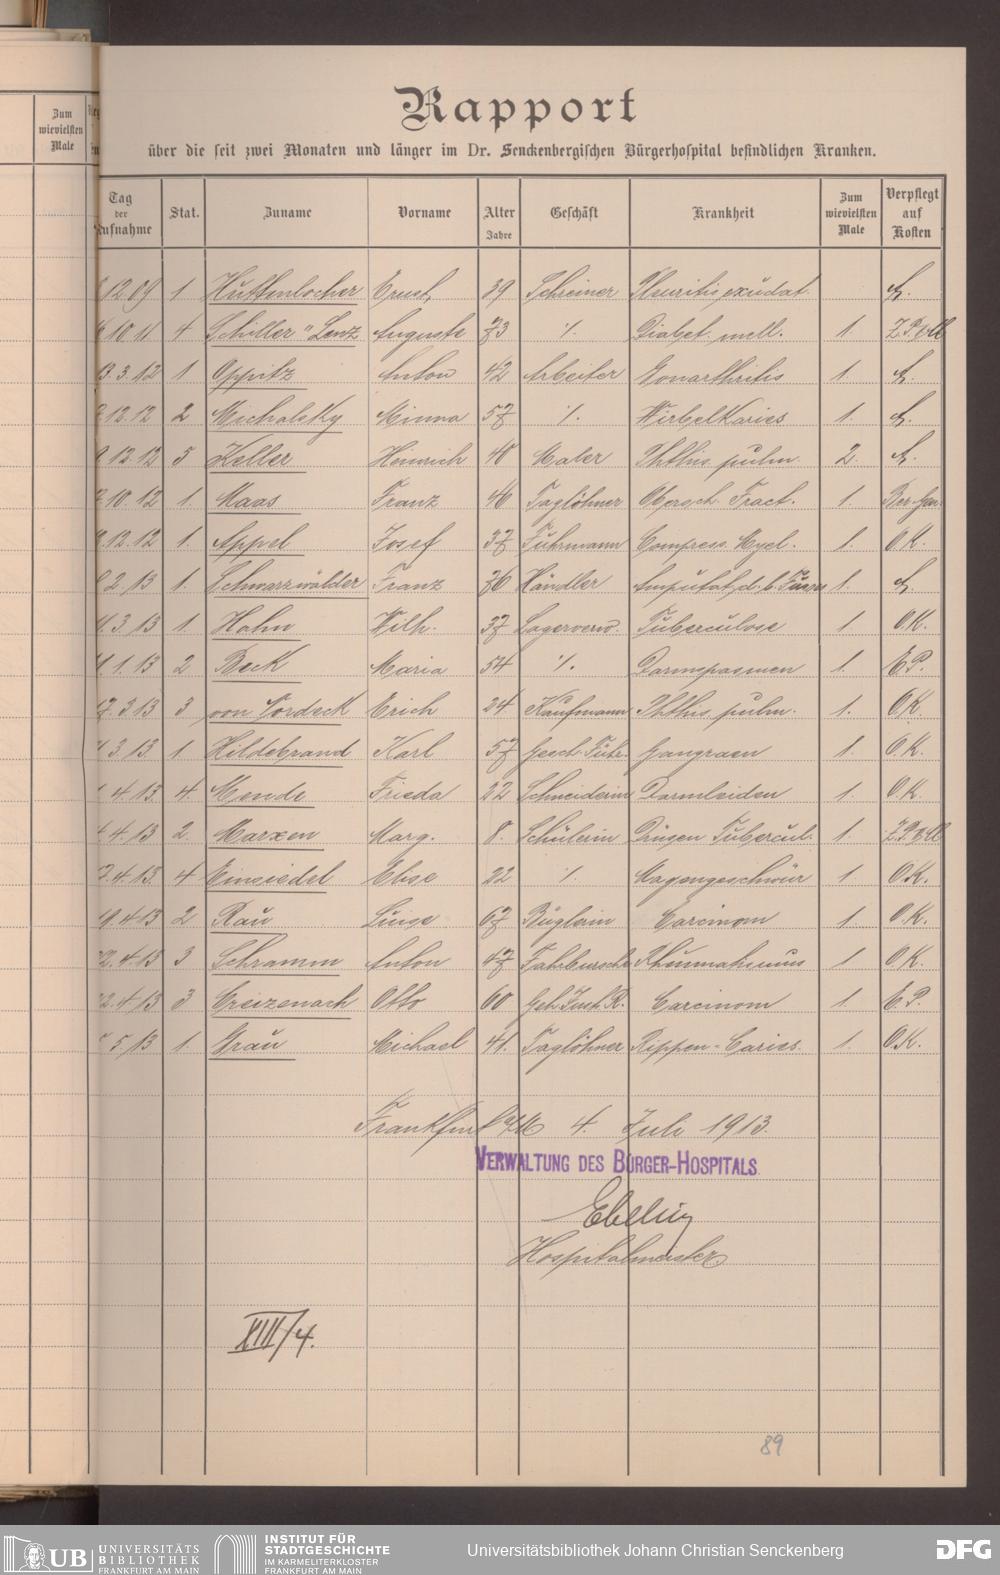 Zum
wievielsten
Male
Rapport
über die seit zwei Monaten und länger im Dr. Senckenbergischen Bürgerhospital befindlichen Kranken.
Tag der Aufnahme Stat. Zuname Vorname Alter Jahre Geschäft Krankheit Zum wievielsten Male Verpflegt auf Kosten
12 09 1 Huttenlocher Ernst 39 Schreiner Pleuritis exudat.
10 11 4 Schiller " Lenz Auguste 73 ·/. Diabet. mell. 1.
3. 3. 12 1 Oppitz Anton 42 Arbeiter Gonarthritis 1.
12 12 2 Michalsky Minna 57 ·/. Wirbelkaries 1.
12. 12 5 Keller Heinrich 40 Maler Phthis. pulm. 2.
10. 12 1 Maas Franz 46 Taglöhner Obersch. Fract. 1. Ber. Gen.
12. 12 1. Appel Josef 37 Fuhrmann Compress. Myel. 1. O.K.
2. 13 1. Schwarzwälder Franz 76 Händler Amputat. d. b. Füsse 1.
3. 13 1. Hahn Wilh. 37 Lagerverw. Tuberculose 1 O.K.
1. 13 2 Beck Maria 54 ·/. Darmspasmen 1. E.P.
3 13 3 von Gordeck Erich 24 Kaufmann Phthis. pulm. 1. O.K.
3. 13. 1 Hildebrand Karl 57 Gesch. Führ. Gangraen 1. O.K.
4. 13. 4. Mende Frieda 22 Schneiderin Darmleiden 1. O.K.
4. 13 2. Marxen Marg. 8. Schülerin Drüsen Tubercul. 1.
7. 4. 13. 4 Einsiedel Elise 22 ·/. Magengeschwür 1 O.K.
9. 4 13 2 Rau Luise 67 Büglerin Carcinom 1. O.K.
22. 4. 13 3 Schramm Anton 47 Fahrbursche Rheumatismus 1 O.K.
22. 4. 13 3 Creizenach Otto 60 Geh. Just. R. Carcinom 1. E.P.
5. 13 1. Grau Michael 41. Taglöhner Rippen-Caries. 1. O.K.
Frankfurt a/M 4. Juli 1913.
VERWALTUNG DES BÜRGER-HOSPITALS.
Ebeling
Hospitalmeister
XIII/4.
89
UB UNIVERSITÄTS
BIBLIOTHEK
FRANKFURT AM MAIN
INSTITUT FÜR
STADTGESCHICHTE
IM KARMELITERKLOSTER
FRANKFURT AM MAIN
Universitätsbibliothek Johann Christian Senckenberg
DFG